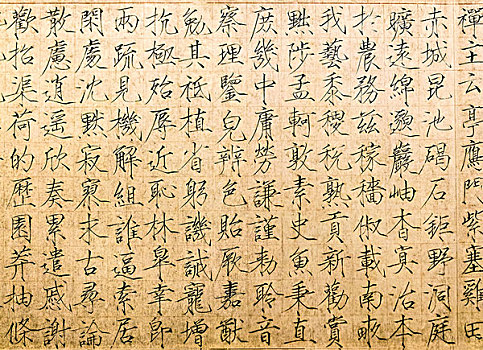 禪主云亭鴈門紫塞雞田
赤城昆池碣石鉅野洞庭
曠遠綿邈巖岫杳冥治本
於農務茲稼穡俶載南畝
我藝黍稷稅熟貢新勸賞
黜陟孟軻敦素史魚秉直
庶幾中庸勞謙謹勅聆音
察理鑒皃辨色貽厥嘉猷
勉其祗植省躬譏誡寵增
抗極殆辱近恥林皋幸即
兩疏見機解組誰逼索居
閑處沈默寂寥求古尋論
散慮逍遙欣奏累遣慼謝
歡招渠荷的歷園莽抽條